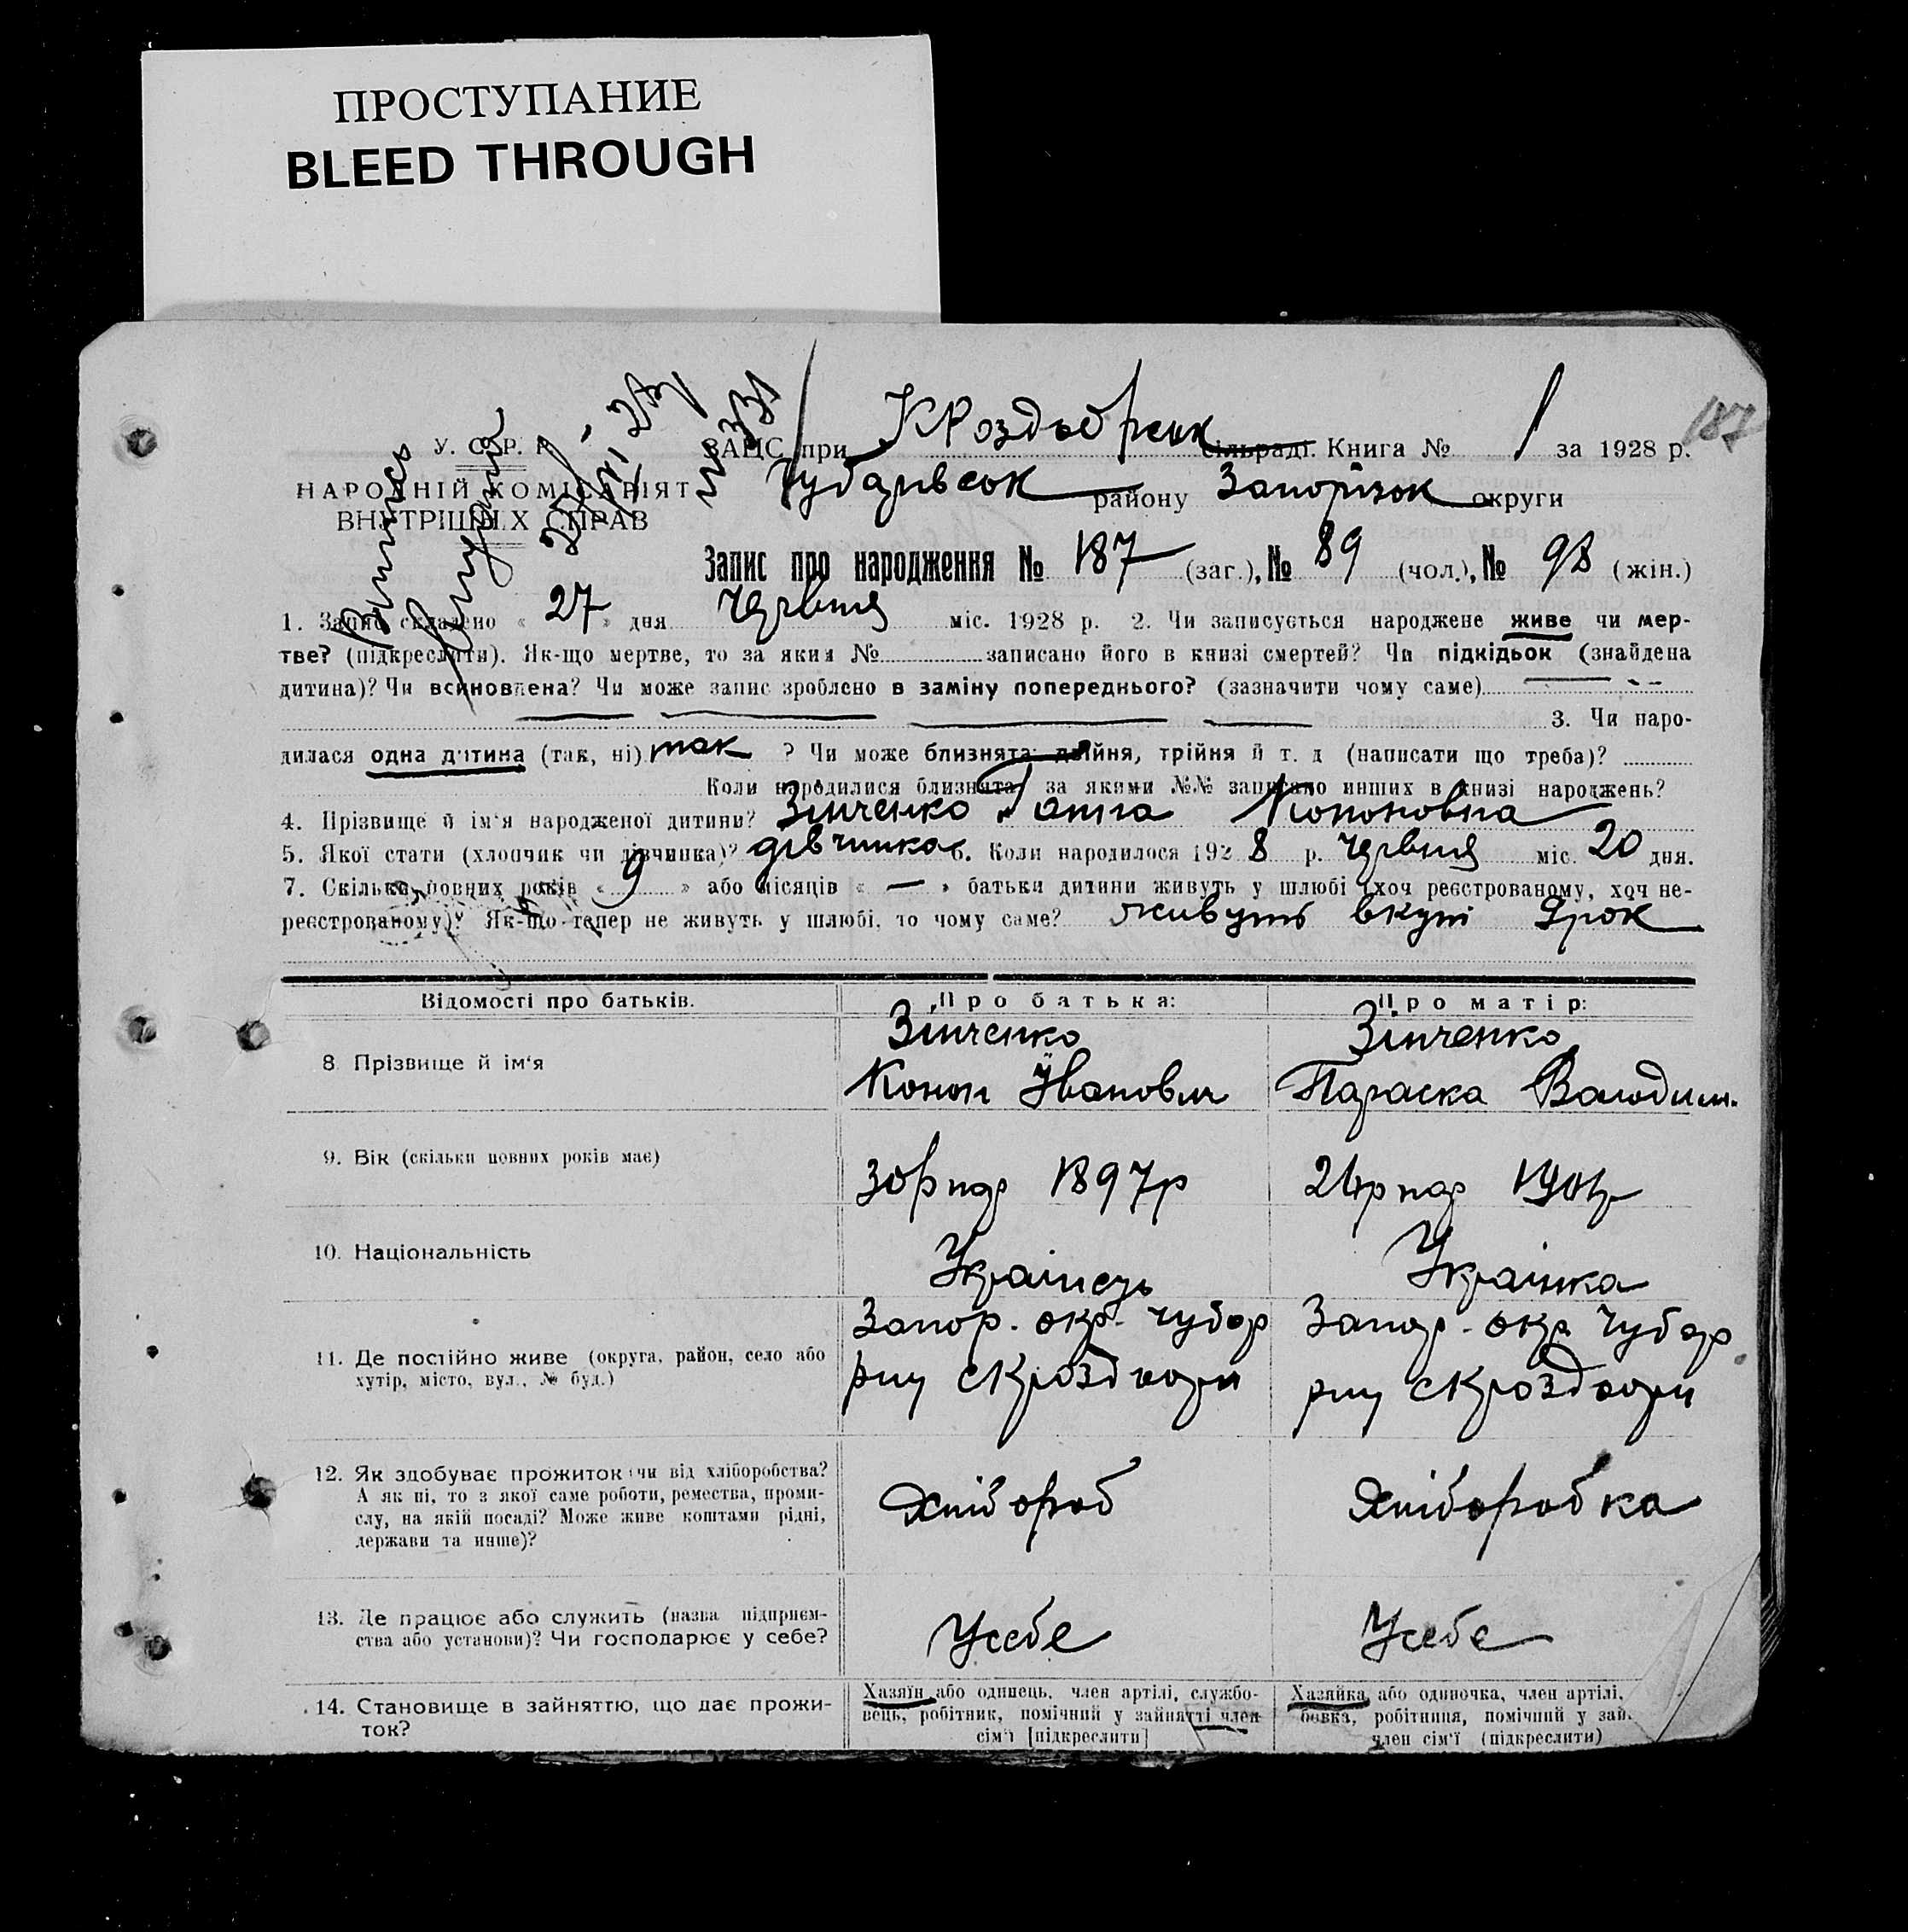 ПРОСТУПАНИЕ
BLEED THROUGH
187
У. С. Р. Р.
НАРОДНІЙ КОМІСАРІЯТ
ВНУТРІШНІХ СПРАВ
ЗАЦС при сільраді. Книга № 1 за 1928 р.
Чубарівськ району Запоріжок округи
Запис про народження № 187 (заг.), № 89 (чол.), № 98 (жін.)
1. Запис складено « 27 » дня Червня міс. 1928 р. 2. Чи записується народжене живе чи мер-
тве? (підкреслити). Як-що мертве, то за яким № записано його в книзі смертей? Чи підкідьок (знайдена
дитина)? Чи всиновлена? Чи може запис зроблено в заміну попереднього? (зазначити чому саме)
3. Чи наро-
дилася одна дитина (так, ні) так ? Чи може близнята: двійня, трійня й т. д (написати що треба)?
Коли народилися близнята, за якими №№ записано инших в книзі народжень?
4. Прізвище й ім'я народженої дитини? Зінченко Ганна Кононовна
5. Якої стати (хлопчик чи дівчинка)? дівчинка 6. Коли народилося 192 8 р. Червня міс. 20 дня.
7. Скільки повних років « 9 » або місяців « — » батьки дитини живуть у шлюбі (хоч реєстрованому, хоч не-
реєстрованому)? Як-що тепер не живуть у шлюбі, то чому саме? живуть вкупі 9 рок
Відомості про батьків. Про батька: Про матір:
8 Прізвище й ім'я Зінченко Конон Іванович Зінченко Параска Володим.
9. Вік (скільки повних років має) 30 р нар 1897 р нар
10. Національність Українець Українка
11. Де постійно живе (округа, район, село або
хутір, місто, вул., № буд.)
Запор. окр. Чубар Запор. окр. Чубар
12. Як здобуває прожиток (чи від хліборобства?
А як ні, то з якої саме роботи, ремества, проми-
слу, на якій посаді? Може живе коштами рідні,
держави та инше)?
Хлібороб Хліборобка
13. Де працює або служить (назва підприєм-
ства або установи)? Чи господарює у себе?
Усебе Усебе
14. Становище в зайняттю, що дає прожи-
ток?
Хазяїн або одинець, член артілі, службо-
вець, робітник, помічний у зайнятті член
сім'ї [підкреслити]
Хазяйка або одиночка, член артілі,
бовка, робітниця, помічний у зай.
член сім'ї (підкреслити)